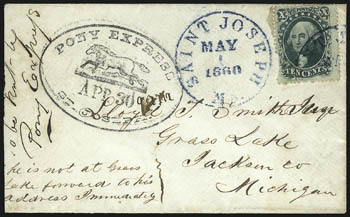 To be sent by
Pony Express
PONY EXPRESS
APR 30
SAINT JOSEPH
MAY
1
1860
Mo.
TEN CENTS
T. Smith
Grass Lake
Jackson co
Michigan
he is not at Grass
Lake forward to his
address Immediately